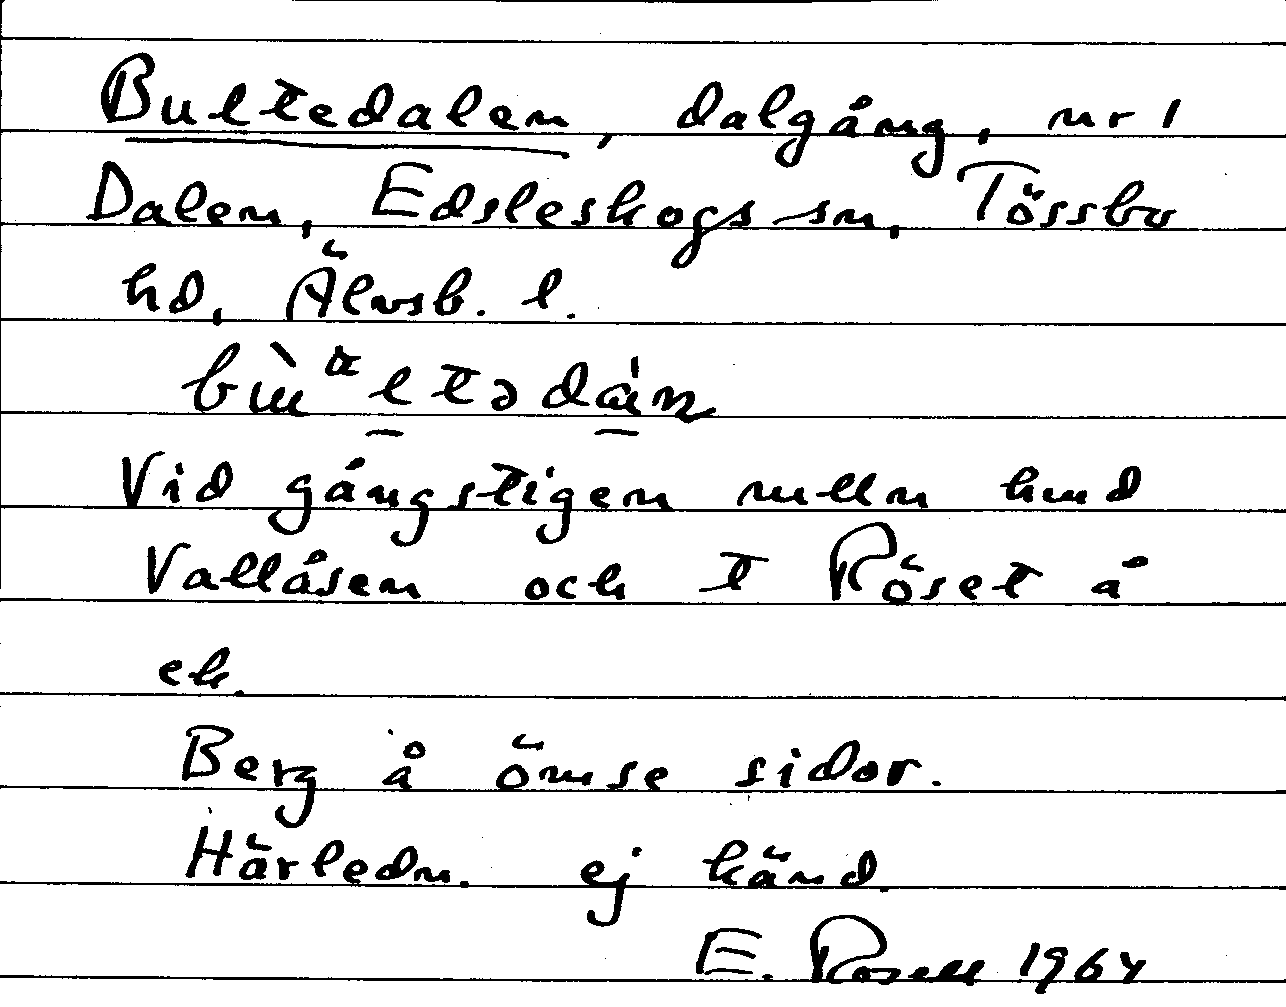 Bultedalen, dalgång, nr 1
Dalen, Edsleskogs sn, Tössbo
hd, Älvsb. l.
Vid gångstigen melln hmd
Vallåsen och t Röset å
ek.
Berg å ömse sidor.
Härledn. ej känd.
E. Rosell 1964